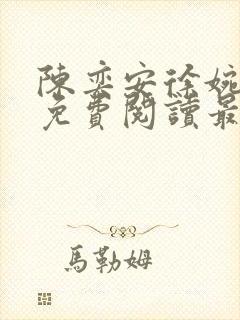 陳奕安徐婉
免費閱讀最
馬勒姆